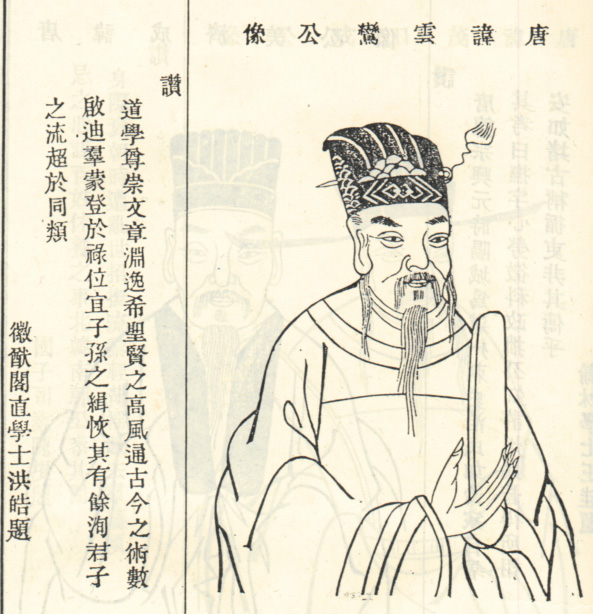 唐諱雲鸞公像
讚
道學尊崇文章淵逸希聖賢之高風通古今之術數
啟迪羣蒙登於祿位宜子孫之緝恢其有餘洵君子
之流超於同類
徽猷閣直學士洪皓題